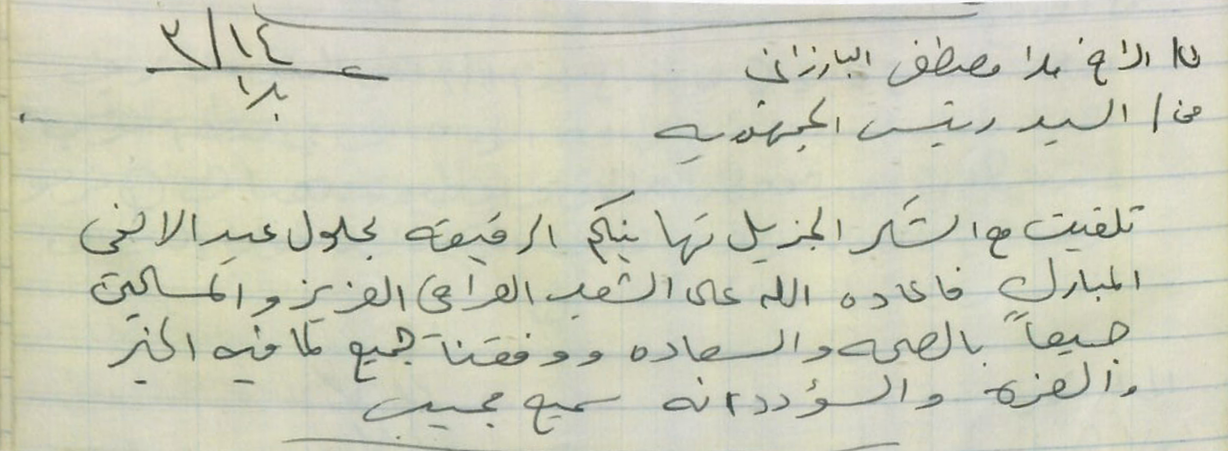 ٣/١٤
الى/ الاخ ملا مصطفى البارزاني
من/ السيد رئيس الجمهوريه
تلقيت مع الشكر الجزيل تهانيكم الرقيقه بحلول عيد الاضحى
المبارك فاعاده الله على الشعب العراقي العزيز والمسلمين
جميعاً بالصحه والسعاده ووفقنا جميع لما فيه الخير
والعزه والسؤدد انه سميع مجيب